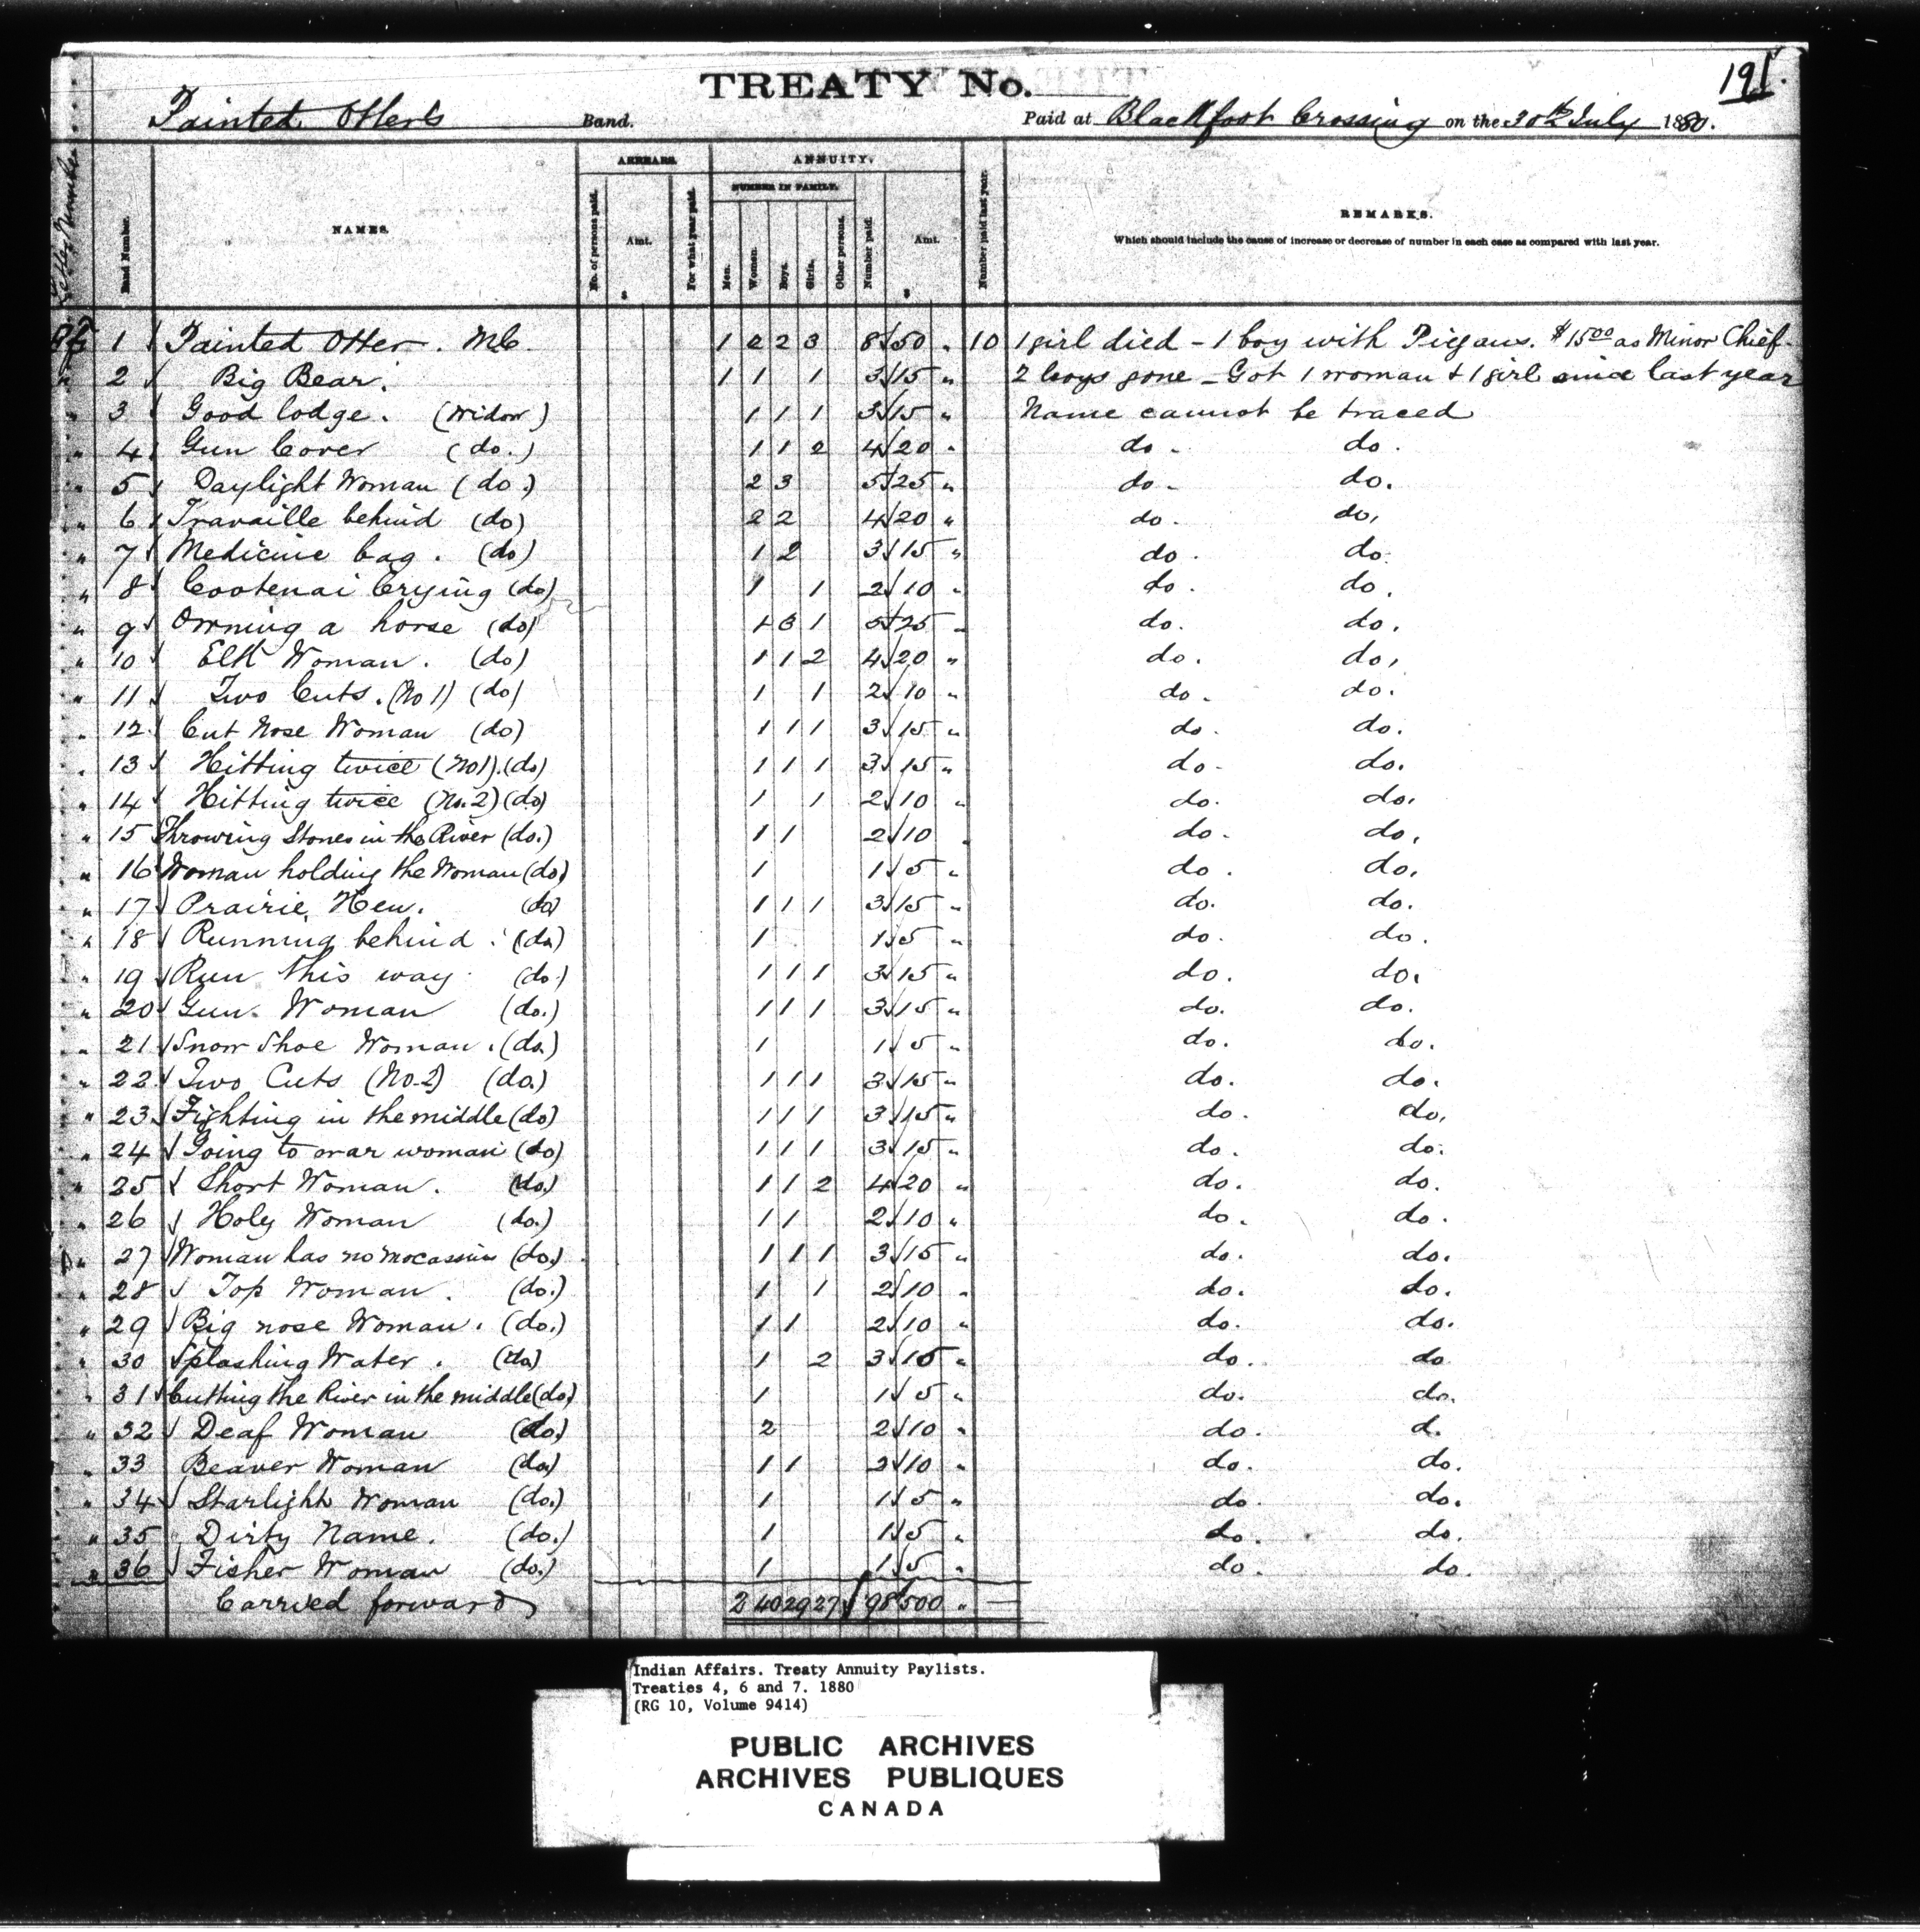 191.
TREATY No.
Painted Otter's Band. Paid at Blackfoot Crossing on the 30th July 1880.
Letter Number
Band Number.
NAMES.
ARREARS.
No. of persons paid.
Amt.
$
For what year paid.
ANNUITY.
NUMBER IN FAMILY.
Men.
Women.
Boys.
Girls.
Other persons.
Number paid.
Amt.
$
Number paid last year.
REMARKS.
Which should include the cause of increase or decrease of number in each case as compared with last year.
1 Painted Otter. M.C. 1 2 2 3 8 50 " 10 1 girl died - 1 boy with Piegans. $15.00 as Minor Chief.
" 2 Big Bear. 1 1 1 3 15 " 2 boys gone - Got 1 woman & 1 girl since last year
" 3 Good lodge. (Widow) 1 1 1 3 15 " Name cannot be traced
" 4 Gun Cover (do.) 1 1 2 4 20 " do. do.
" 5 Daylight Woman (do.) 2 3 5 25 " do. do.
" 6 Travaille behind (do) 2 2 4 20 " do. do.
" 7 Medicine bag. (do) 1 2 3 15 " do. do.
" 8 Cootenai Crying (do) 1 1 2 10 " do. do.
" 9 Owning a horse (do) 1 3 1 5 25 " do. do.
" 10 Elk Woman. (do) 1 1 2 4 20 " do. do.
" 11 Two Cuts. (No 1) (do) 1 1 2 10 " do. do.
" 12 Cut Nose Woman (do) 1 1 1 3 15 " do. do.
" 13 Hitting twice (No 1). (do) 1 1 1 3 15 " do. do.
" 14 Hitting twice (No. 2) (do) 1 1 2 10 " do. do.
" 15 Throwing Stones in the River (do.) 1 1 2 10 " do. do.
" 16 Woman holding the Woman (do) 1 1 5 " do. do.
" 17 Prairie Hen. (do) 1 1 1 3 15 " do. do.
" 18 Running behind. (do) 1 1 5 " do. do.
" 19 Run this way. (do.) 1 1 1 3 15 " do. do.
" 20 Gun Woman (do.) 1 1 1 3 15 " do. do.
" 21 Snow Shoe Woman. (do) 1 1 5 " do. do.
" 22 Two Cuts (No. 2) (do.) 1 1 1 3 15 " do. do.
" 23 Fighting in the middle (do) 1 1 1 3 15 " do. do.
" 24 Going to war woman (do) 1 1 1 3 15 " do. do.
" 25 Short Woman. (do.) 1 1 2 4 20 " do. do.
" 26 Holy Woman (do.) 1 1 2 10 " do. do.
27 Woman has no mocassins (do.) 1 1 1 3 15 " do. do.
" 28 Top Woman. (do.) 1 1 2 10 " do. do.
" 29 Big nose Woman. (do.) 1 1 2 10 " do. do.
" 30 Splashing Water. (do) 1 2 3 15 " do. do
" 31 Cutting the River in the middle (do) 1 1 5 " do. do.
" 32 Deaf Woman (do.) 2 2 10 " do. d.
" 33 Beaver Woman (do) 1 1 2 10 " do. do.
" 34 Starlight Woman (do.) 1 1 5 " do. do.
" 35 Dirty Name. (do.) 1 1 5 " do. do.
" 36 Fisher Woman (do.) 1 1 5 " do. do.
Carried forward 2 40 29 27 98 500 "
Indian Affairs. Treaty Annuity Paylists.
Treaties 4, 6 and 7. 1880
(RG 10, Volume 9414)
PUBLIC ARCHIVES
ARCHIVES PUBLIQUES
CANADA